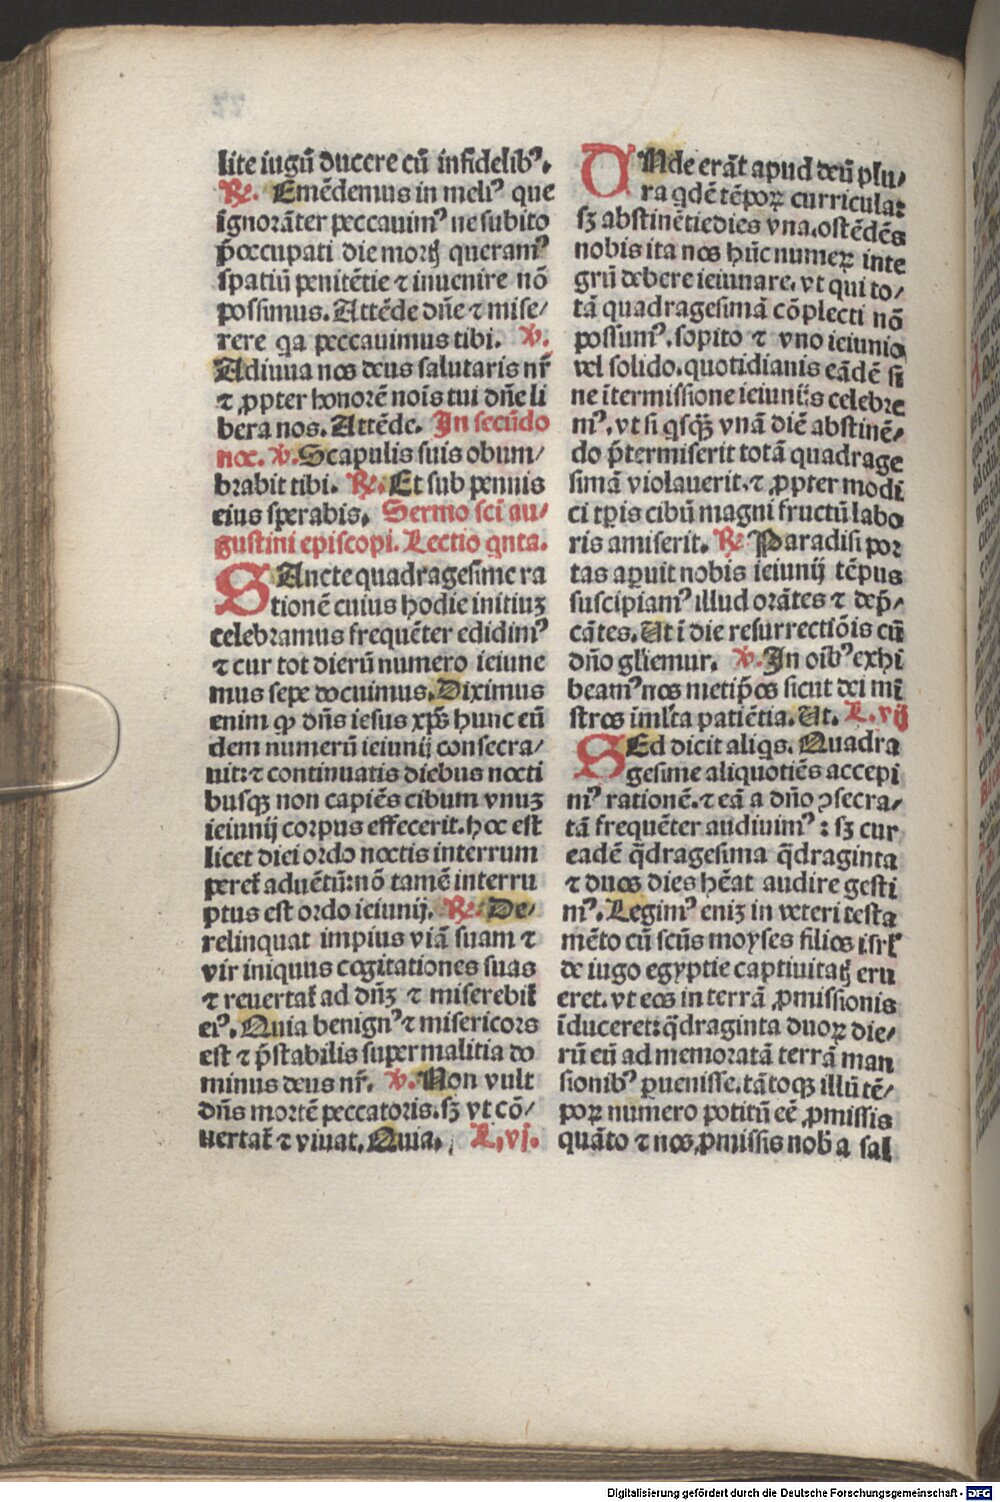 lite iugū ducere cū infidelibꝰ.
℟. Emēdemus in meliꝰ que
ignorāter peccauimꝰ ne subito
p̄occupati die mortꝭ queramꝰ
spatiū penitētie ⁊ inuenire nō
possimus. Attēde dn̄e ⁊ mise/
rere qa peccauimus tibi. ℣.
Adiuua nos deus salutaris nr̄
⁊ ꝓpter honorē noīs tui dn̄e li
bera nos. Attēde. In secūdo
noc. ℣. Scapulis suis obum/
brabit tibi. ℟. Et sub pennis
eius sperabis. Sermo sci au/
gustini episcopi. Lectio qnta.
SAncte quadragesime ra
tionē cuius hodie initiuꝫ
celebramus frequēter edidimꝰ
⁊ cur tot dierū numero ieiune
mus sepe docuimus. Diximus
enim ꝙ dn̄s iesus xp̄s hunc eū
dem numerū ieiunij consecra/
uit: ⁊ continuatis diebus nocti
busqꝫ non capiēs cibum vnuꝫ
ieiunij corpus effecerit. hoc est
licet diei ordo noctis interrum
peret̄ aduētū: nō tamē interru
ptus est ordo ieiunij. ℟. De/
relinquat impius viā suam ⁊
vir iniquus cogitationes suas
⁊ reuertat̄ ad dn̄ꝫ ⁊ miserebit̄
eiꝰ. Quia benignꝰ ⁊ misericors
est ⁊ p̄stabilis super malitia do
minus deus nr̄. ℣. Non vult
dn̄s mortē peccatoris. sꝫ vt cō/
uertat̄ ⁊ viuat. Quia. L. vj.
VNde erāt apud deū plu/
ra qdē tēpoꝝ curricula:
sꝫ abstinētie dies vna. ostēdēs
nobis ita nos hūc numeꝝ inte
grū debere ieiunare. vt qui to/
tā quadragesimā cōplecti nō
possumꝰ. sopito ⁊ vno ieiunio
vel solido. quotidianis eādē si
ne itermissione ieiunijs celebre
mꝰ. vt si qsqꝫ vnā diē abstinē/
do p̄termiserit totā quadrage
simā violauerit. ⁊ ꝓpter modi
ci tꝑis cibū magni fructū labo
ris amiserit. ℟. Paradisi por
tas aꝑuit nobis ieiunij tēpus
suscipiamꝰ illud orātes ⁊ dep̄/
cātes. Ut ī die resurrectiōis cū
dn̄o gl̄iemur. ℣. In oībꝰ exhi
beamꝰ nos metip̄os sicut dei mī
stros ī ml̄ta patiētia. Ut. L. vij
SEd dicit aliqs. Quadra
gesime aliquotiēs accepi
mꝰ rationē. ⁊ eā a dn̄o ꝯsecra/
tā frequēter audiuimꝰ: sꝫ cur
eadē q̄dragesima q̄draginta
⁊ duos dies hēat audire gesti
mꝰ. Legimꝰ eniꝫ in veteri testa
mēto cū scūs moyses filios isrl̄
de iugo egyptie captiuitatꝭ eru
eret. vt eos in terrā ꝓmissionis
īduceret: q̄draginta duoꝝ die/
rū eū ad memoratā terrā man
sionibꝰ ꝑuenisse. tātoqꝫ illū tē/
poꝝ numero potitū eē ꝓmissis
quāto ⁊ nos ꝓmissis nob̄ a sal
Digitalisierung gefördert durch die Deutsche Forschungsgemeinschaft - DFG